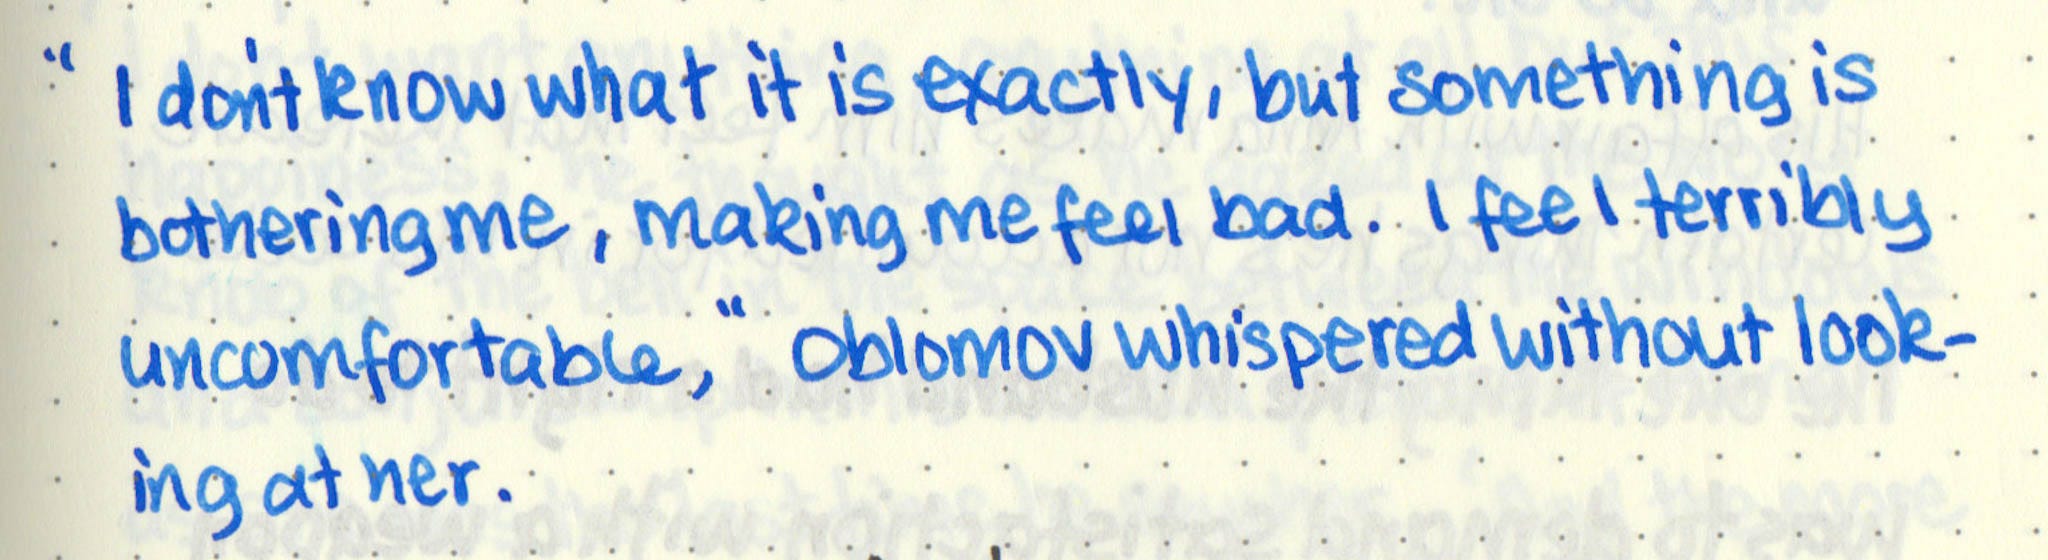 "I don't know what it is exactly, but something is
bothering me, making me feel bad. I feel terribly
uncomfortable," Oblomov whispered without look-
ing at her.